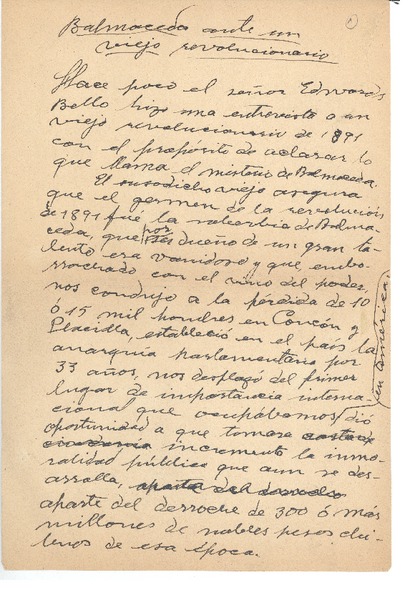 1
Balmaceda ante un
viejo revolucionario
Hace poco el señor Edwards
Bello hizo una entrevista a un
viejo revolucionario de 1891
con el propósito de aclarar lo
que llama el misterio de Balmaceda.
El susodicho viejo asegura
que el germen de la revolución
de 1891 fué la soberbia de Balma-
ceda, que dueño de un gran ta-
lento era vanidoso y que, embo-
rrachado con el vino del poder,
nos condujo a la pérdida de 10
ó 15 mil hombres en Concón y
Placilla, estableció en el país la
anarquía parlamentaria por
33 años, nos desplazó del primer
lugar de importancia interna-
cional que ocupábamos en América, dió
oportunidad a que tomara
incremento la inmo-
ralidad pública que aun se des-
arrolla, aparte del derroche
aparte del derroche de 300 ó más
millones de nobles pesos chi-
lenos de esa época.